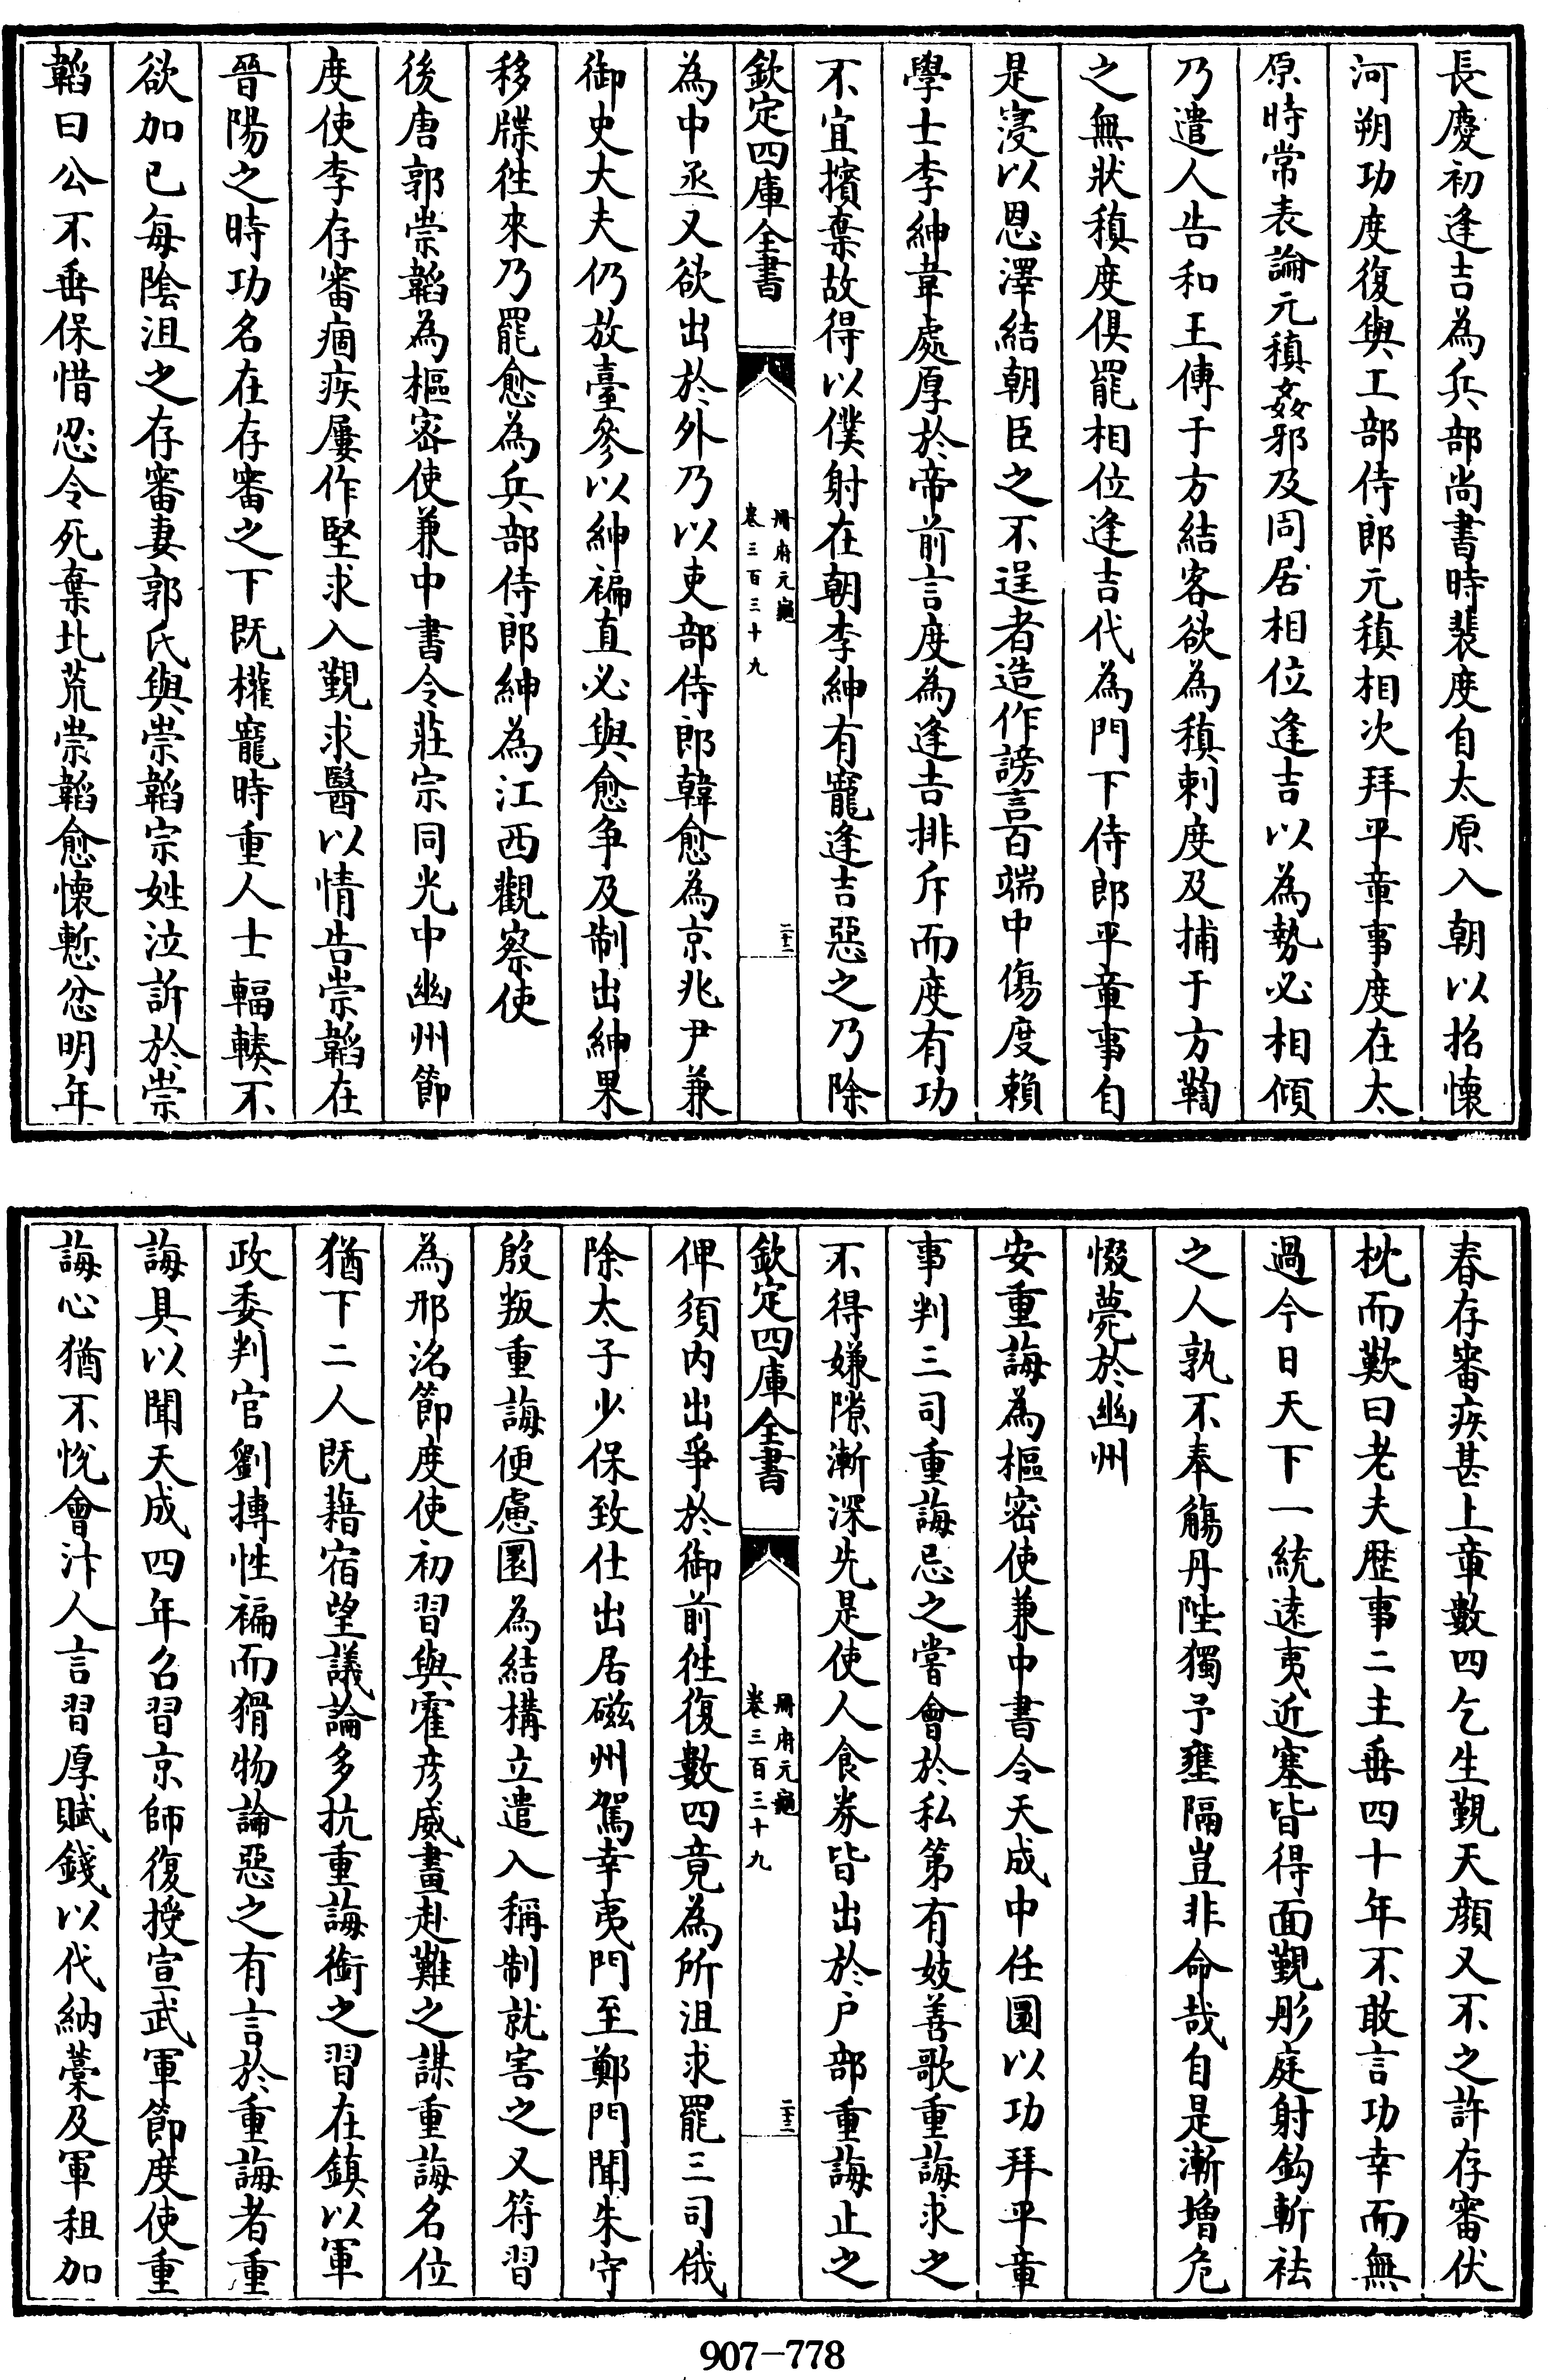 長慶初逢吉為兵部尚書時裴度自太原入朝以招懷
河朔功度復與工部侍郎元稹相次拜平章事度在太
原時常表論元稹姦邪及同居相位逢吉以為勢必相傾
乃遣人告和王傅于方結客欲為稹刺度及捕于方鞫
之無狀稹度俱罷相位逢吉代為門下侍郎平章事自
是寖以恩澤結朝臣之不逞者造作謗言百端中傷度賴
學士李紳韋處厚於帝前言度為逢吉排斥而度有功
不宜擯棄故得以僕射在朝李紳有寵逢吉惡之乃除
欽定四庫全書
冊府元龜
卷三百三十九
二十二
為中丞又欲出於外乃以吏部侍郎韓愈為京兆尹兼
御史大夫仍放臺參以紳褊直必與愈爭及制出紳果
移牒往來乃罷愈為兵部侍郎紳為江西觀察使
後唐郭崇韜為樞密使兼中書令莊宗同光中幽州節
度使李存審痼疾屢作堅求入覲求醫以情告崇韜在
晉陽之時功名在存審之下既權寵時重人士輻輳不
欲加已每陰沮之存審妻郭氏與崇韜宗姓泣訴於崇
韜曰公不垂保惜忍令死棄北荒崇韜愈懷慙忿明年
春存審疾甚上章數四乞生覲天顏又不之許存審伏
枕而歎曰老夫歷事二主垂四十年不敢言功幸而無
過今日天下一統遠夷近塞皆得面覲彤庭射鈎斬袪
之人孰不奉觴丹陛獨予壅隔豈非命哉自是漸增危
惙薨於幽州
安重誨為樞密使兼中書令天成中任圜以功拜平章
事判三司重誨忌之嘗會於私第有妓善歌重誨求之
不得嫌隙漸深先是使人食券皆出於户部重誨止之
欽定四庫全書
冊府元龜
卷三百三十九
二十三
俾須内出爭於御前往復數四竟為所沮求罷三司俄
除太子少保致仕出居磁州駕幸夷門至鄭門聞朱守
殷叛重誨便慮圜為結構立遣入稱制就害之又符習
為邢洺節度使初習與霍彦威畫赴難之謀重誨名位
猶下二人既藉宿望議論多抗重誨銜之習在鎮以軍
政委判官劉摶性褊而猾物論惡之有言於重誨者重
誨具以聞天成四年召習京師復授宣武軍節度使重
誨心猶不悅會汴人言習厚賦錢以代納藁及軍租加
907-778